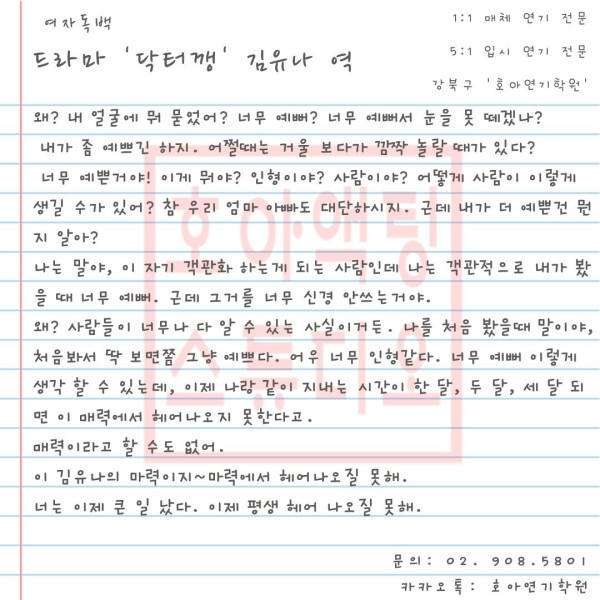 여자독백
1:1 매체 연기 전문
드라마 '닥터깽' 김유나 역
5:1 입시 연기 전문
강북구 '호아연기학원'
왜? 내 얼굴에 뭐 묻었어? 너무 예뻐? 너무 예뻐서 눈을 못 떼겠나?
내가 좀 예쁘긴 하지. 어쩔때는 거울 보다가 깜짝 놀랄 때가 있다?
너무 예쁜거야! 이게 뭐야? 인형이야? 사람이야? 어떻게 사람이 이렇게
생길 수가 있어? 참 우리 엄마 아빠도 대단하시지. 근데 내가 더 예쁜건 뭔
지 알아?
나는 말야, 이 자기 객관화 하는게 되는 사람인데 나는 객관적으로 내가 봤
을 때 너무 예뻐. 근데 그거를 너무 신경 안쓰는거야.
왜? 사람들이 너무나 다 알 수 있는 사실이거든. 나를 처음 봤을때 말이야,
처음봐서 딱 보면쫌 그냥 예쁘다. 어우 너무 인형같다. 너무 예뻐 이렇게
생각 할 수 있는데, 이제 나랑 같이 지내는 시간이 한 달, 두 달, 세 달 되
면 이 매력에서 헤어나오지 못한다고.
매력이라고 할 수도 없어.
이 김유나의 마력이지~마력에서 헤어나오질 못해.
너는 이제 큰 일 났다. 이제 평생 헤어 나오질 못해.
호아액팅
스튜디오
문의: 02. 908.5801
카카오톡: 호아연기학원